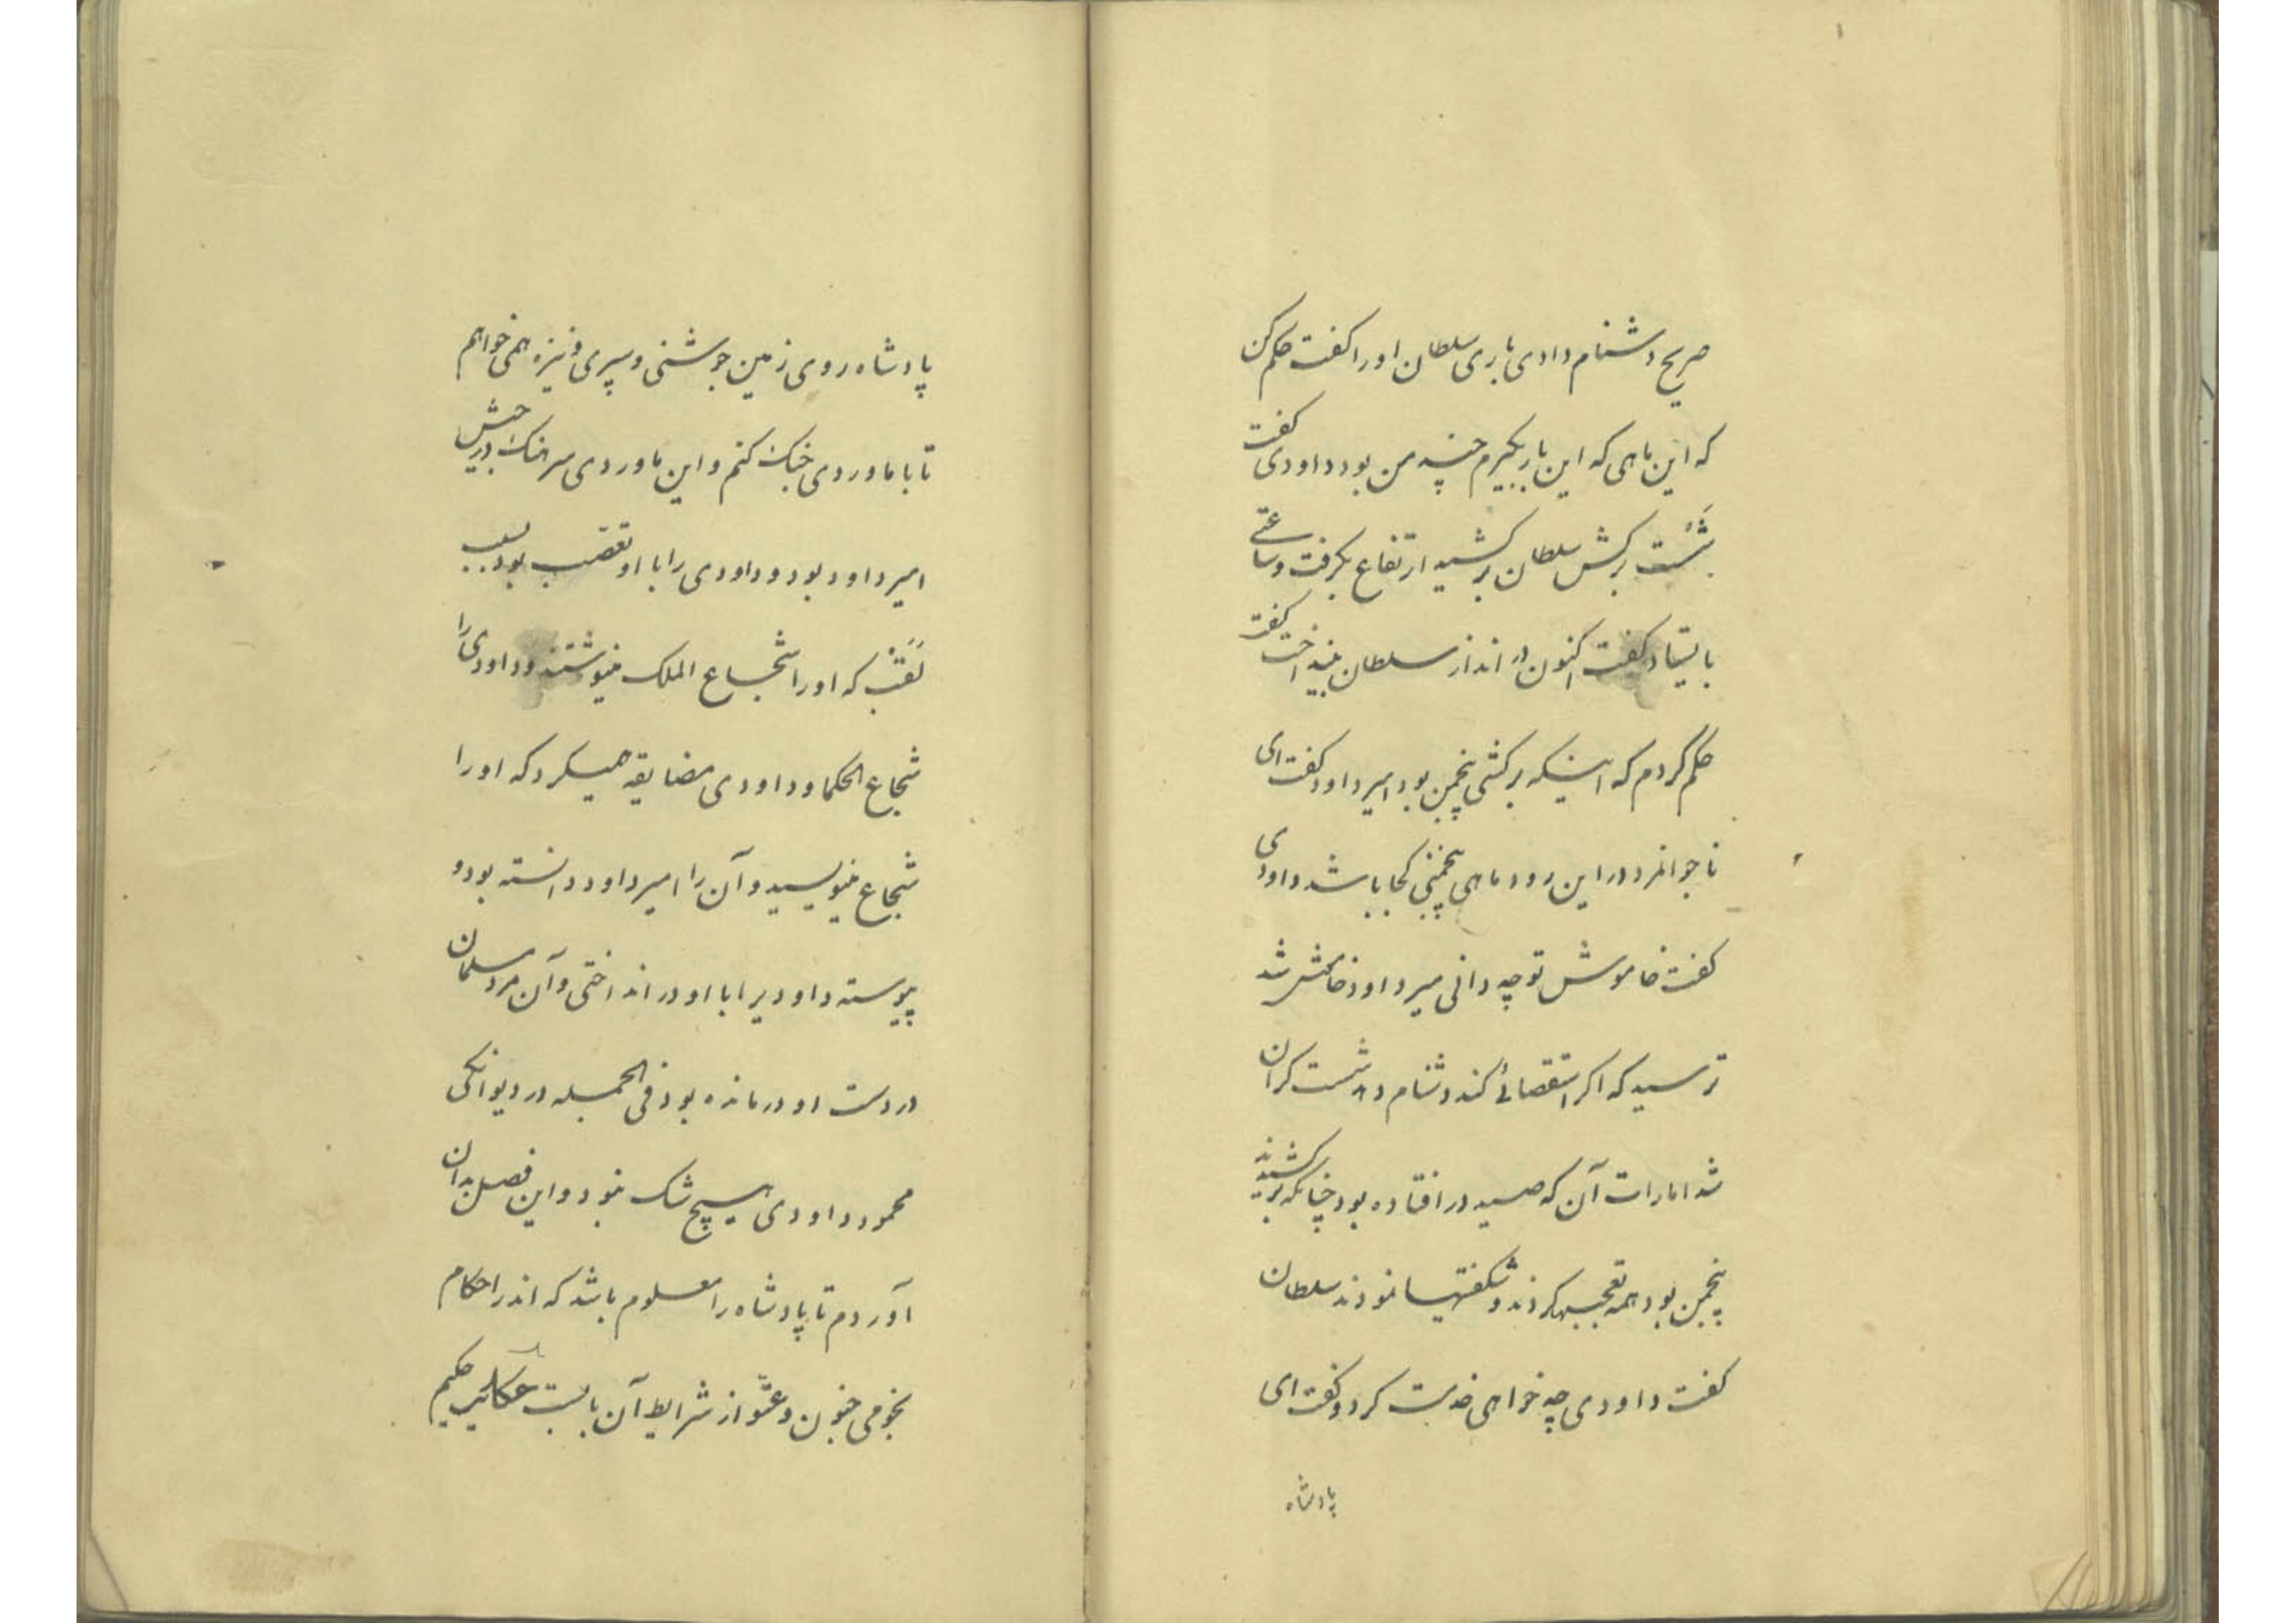 صریح دشنام دادی باری سلطان اورا کفت حکم کن
که این ماهی که این بار بکیرم چند من بود داودی کفت
شست برکش سلطان برکشید ارتفاع بکرفت و ساعتی
بایستاد کفت اکنون در انداز سلطان بینداخت کفت
حکم کردم که اینکه برکشی پنجمن بود امیر داود کفت ای
ناجوانمرد در این رود ماهی پنجمنی کجا باشد داودی
کفت خاموش توچه دانی میر داود خامش شد
ترسید که اکر استقصائی کند دشنام دهد شست کران
شد امارات آن که صید در افتاده بود چنانکه برکشیدند
پنجمن بود همه تعجبها کردند و شکفتیها نمودند سلطان
کفت داودی چه خواهی خدمت کرد و کفت ای
پادشاه
پادشاه روی زمین جوشنی و سپری و نیزه همی خواهم
تا با ماوردی جنک کنم و این ماوردی سرهنک در
امیر داود بود و داودی را با او تعصب بود بسبب
لقب که اورا شجاع الملک مینوشتند و داودی را
شجاع الحکما و داودی مضایقه همیکرد که اورا
شجاع مینویسید و آن را امیر داود دانسته بود و
پیوسته داودیرا با او در انداختی و آن مرد مسلمان
در دست او درمانده بود فی الجمله در دیوانکی
محمود داودی هیچ شک نبود و این فصل بدان
آوردم تا پادشاه را معلوم باشد که اندر احکام
نجومی جنون و عته از شرایط آن بابست حکایت حکیم